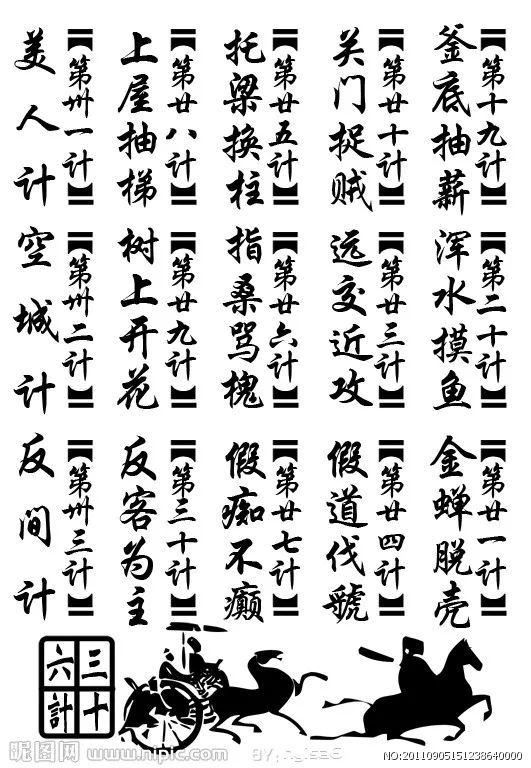 【第十九计】
釜底抽薪
【第二十计】
浑水摸鱼
【第廿一计】
金蝉脱壳
【第廿十计】
关门捉贼
【第廿三计】
远交近攻
【第廿四计】
假道伐虢
【第廿五计】
托梁换柱
【第廿六计】
指桑骂槐
【第廿七计】
假痴不癫
【第廿八计】
上屋抽梯
【第廿九计】
树上开花
【第三十计】
反客为主
【第卅一计】
美人计
【第卅二计】
空城计
【第卅三计】
反间计
三十
六計
昵图网
www.nipic.com
BY:
NO:20110905151238640000